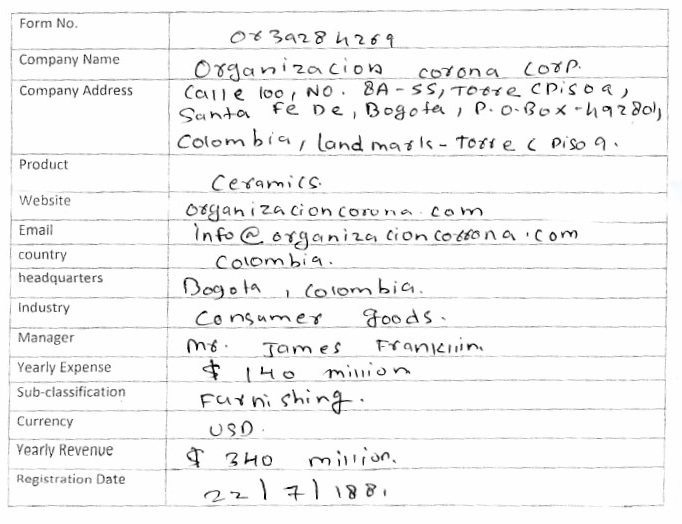 Form No. 0r39284269
Company Name Organizacion corona Corp.
Company Address Calle 100, NO. 8A-55, Torre C Piso 9,
Santa Fe De, Bogota, P.O-Box-492801,
Colombia, landmark-Torre C Piso 9.
Product Ceramics.
Website organizacioncorona.com
Email info@organizacioncorrona.com
country Colombia.
headquarters Bogota, Colombia.
Industry Consumer goods.
Manager Mr. James Franklin.
Yearly Expense $ 140 million
Sub-classification Furnishing.
Currency USD.
Yearly Revenue $ 340 million.
Registration Date 22/7/1881